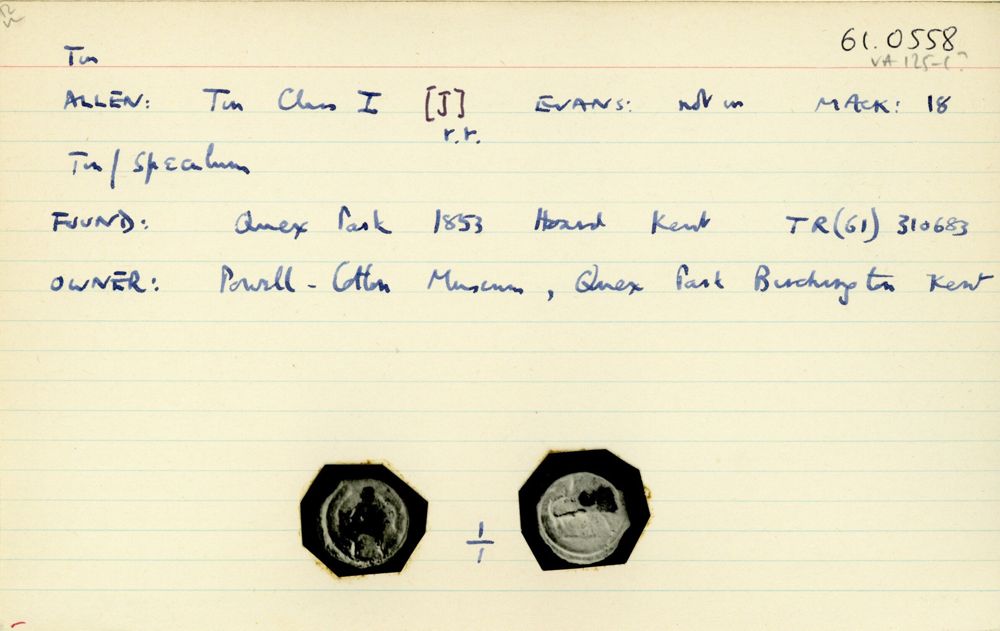 61.0558
Tin
VA 125-1?
ALLEN: Tin Class I [J] EVANS: not in MACK: 18
r.r.
Tin / Speculum
FOUND: Quex Park 1853 Hoard Kent TR(61) 310683
OWNER: Powell-Cotton Museum, Quex Park Birchington Kent
1
1